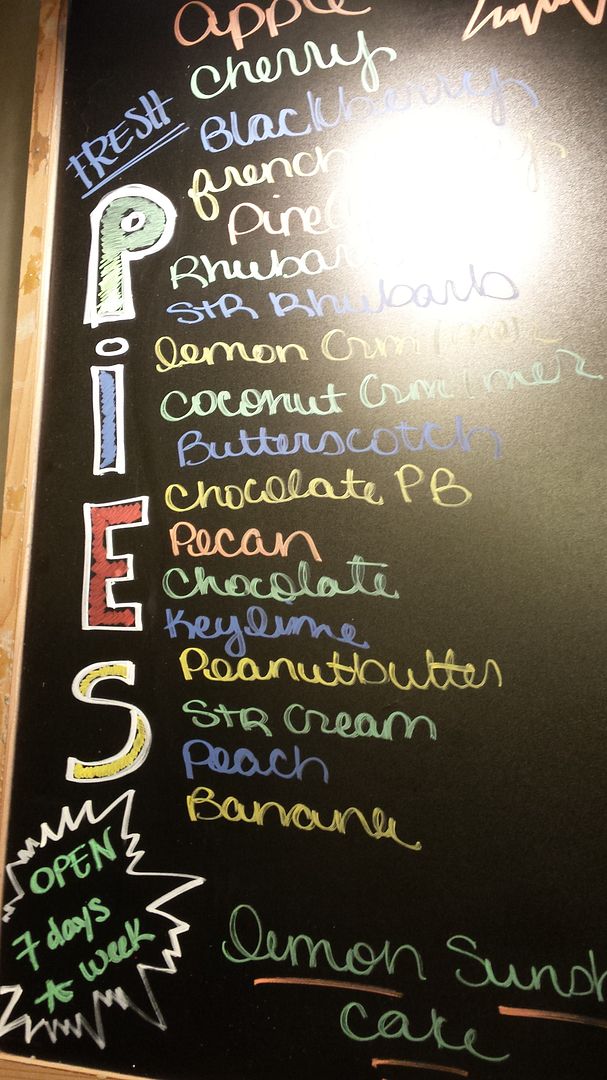 Apple
Cherry
FRESH
Blackberry
french
Rhubarb
STR Rhubarb
PiES
lemon Crm/mer
coconut Crm/mer
Butterscotch
Chocolate PB
Pecan
Chocolate
Keylime
Peanutbutter
STR Cream
Peach
Banana
OPEN
7 days
A week
lemon
Cake